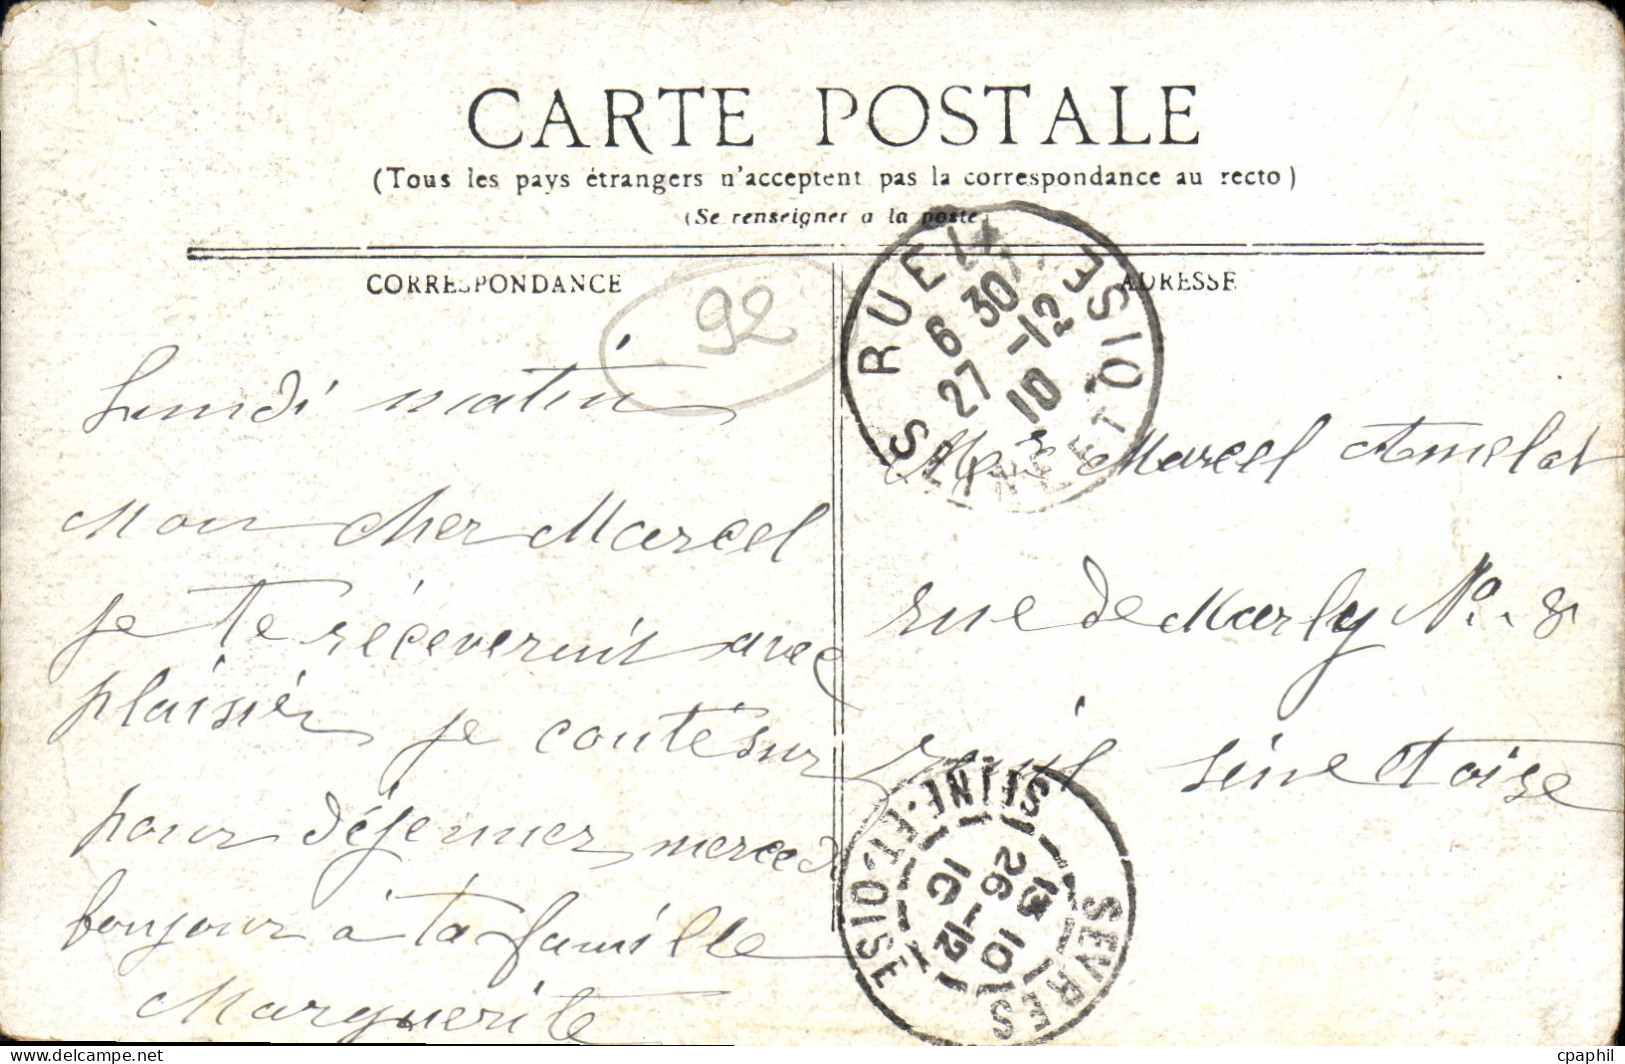 CARTE POSTALE
(Tous les pays étrangers n'acceptent pas la correspondance au recto)
(Se renseigner a la poste)
CORRESPONDANCE
92
Lundi matin
Mon cher Marcel
je te réceveruit avec
plaisiér je contésur
pour déjenner, mercedi
bonjour à ta famille
Marguerite
ADRESSE
Marcel Amelot
rue de Marly No. 8
rueil seine et oise
RUEIL
6 30
27 -12
10
SEINE ET OISE
SEVRES
SEINE-ET-OISE
26 -12
10
cpaphil
delcampe.net